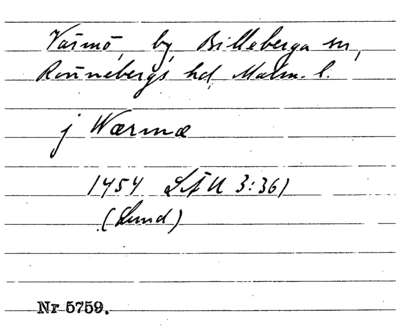 Värmö, by, Billeberga sn,
Rönnebergs hd, Malm. l.
j Wærmæ
1454 LÄU 3:361
(Lund)
Nr 5759.